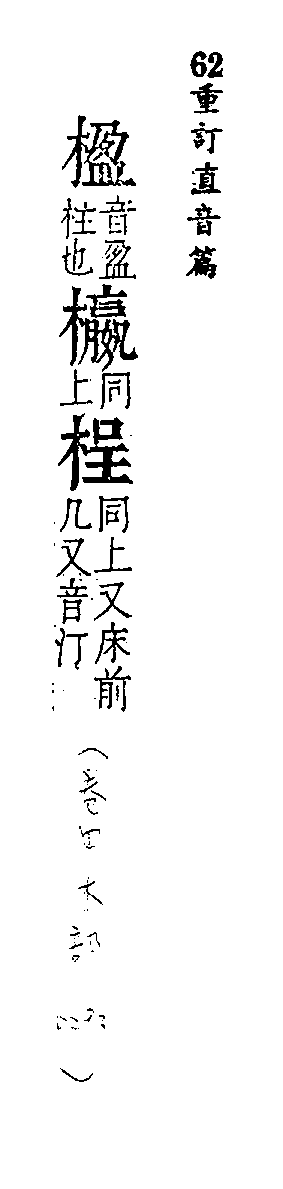 62重訂直音篇
楹音盈柱也㰆同上桯同上又床前几又音汀
（卷四 木部
）